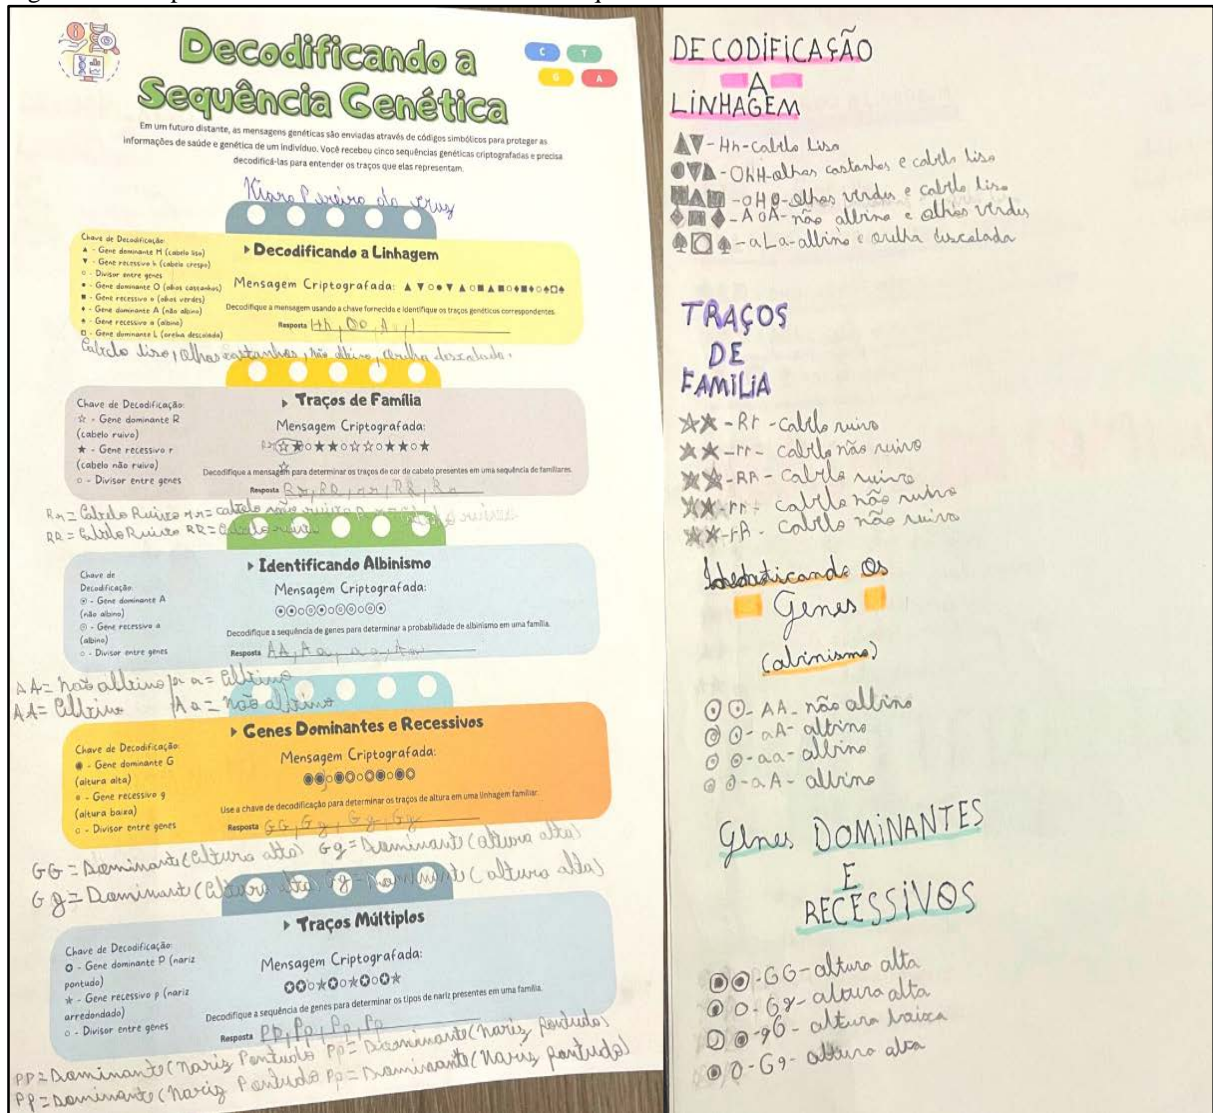 Decodificando a
Sequência Genética
C T
G A
Em um futuro distante, as mensagens genéticas são enviadas através de códigos simbólicos para proteger as
informações de saúde e genética de um indivíduo. Você recebeu cinco sequências genéticas criptografadas e precisa
decodificá-las para entender os traços que elas representam.
Chave de Decodificação:
▲ - Gene dominante H (cabelo liso)
▼ - Gene recessivo h (cabelo crespo)
○ - Divisor entre genes
● - Gene dominante O (olhos castanhos)
■ - Gene recessivo o (olhos verdes)
♦ - Gene dominante A (não albino)
♠ - Gene recessivo a (albino)
□ - Gene dominante L (orelha descolada)
▸ Decodificando a Linhagem
Mensagem Criptografada:
Decodifique a mensagem usando a chave fornecida e identifique os traços genéticos correspondentes.
Resposta Hh, Oo, A
Cabelo liso, olhos castanhos, não albino, orelha descolada.
Chave de Decodificação:
☆ - Gene dominante R
(cabelo ruivo)
★ - Gene recessivo r
(cabelo não ruivo)
○ - Divisor entre genes
▸ Traços de Família
Mensagem Criptografada:
☆★○★★○☆☆○★★○★
Decodifique a mensagem para determinar os traços de cor de cabelo presentes em uma sequência de familiares.
Resposta Rr, RR, rr, RR, Rr
Rr = Cabelo Ruivo rr = cabelo não ruivo
RR = Cabelo Ruivo RR =
Chave de
Decodificação:
⊙ - Gene dominante A
(não albino)
◎ - Gene recessivo a
(albino)
○ - Divisor entre genes
▸ Identificando Albinismo
Mensagem Criptografada:
Decodifique a sequência de genes para determinar a probabilidade de albinismo em uma família.
Resposta AA, Aa, aa, Aa
AA = não albino aa = albino
AA = albino Aa = não albino
Chave de Decodificação:
◉ - Gene dominante G
(altura alta)
- Gene recessivo g
(altura baixa)
○ - Divisor entre genes
▸ Genes Dominantes e Recessivos
Mensagem Criptografada:
Use a chave de decodificação para determinar os traços de altura em uma linhagem familiar.
Resposta GG, Gg, Gg, Gg
GG = Dominante (altura alta) Gg = Dominante (altura alta)
Gg = Dominante (altura alta) Gg = Dominante (altura alta)
Chave de Decodificação:
✪ - Gene dominante P (nariz
pontudo)
✭ - Gene recessivo p (nariz
arredondado)
○ - Divisor entre genes
▸ Traços Múltiplos
Mensagem Criptografada:
Decodifique a sequência de genes para determinar os tipos de nariz presentes em uma família.
Resposta PP, Pp, Pp, Pp
PP = Dominante (nariz Pontudo Pp = Dominante (nariz pontudo)
Pp = Dominante (nariz Pontudo Pp = Dominante (nariz pontudo)
DECODIFICAÇÃO
A
LINHAGEM
▲▼ - Hh - cabelo liso
●▼▲ - OhH - olhos castanhos e cabelo liso
■▲■ - oHo - olhos verdes e cabelo liso
♦■♦ - AoA - não albino e olhos verdes
♠□♠ - aLa - albino e orelha descolada
TRAÇOS
DE
FAMÍLIA
☆★ - Rr - cabelo ruivo
★★ - rr - cabelo não ruivo
☆☆ - RR - cabelo ruivo
★★ - rr - cabelo não ruivo
★☆ - rR - cabelo não ruivo
Os
Genes
(albinismo)
⊙⊙ - AA - não albino
◎⊙ - aA - albino
◎◎ - aa - albino
◎⊙ - aA - albino
Genes DOMINANTES
E
RECESSIVOS
◉◉ - GG - altura alta
◉○ - Gg - altura alta
○◉ - gG - altura baixa
◉○ - Gg - altura alta